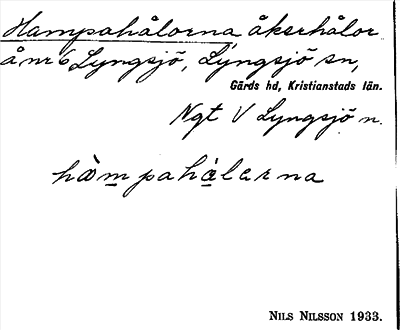 Hampahålorna åkerhålor
å nr 6 Lyngsjö, Lyngsjö sn,
Gärds hd, Kristianstads län.
Ngt V Lyngsjö n.
hàm̲pahá̲larna
NILS NILSSON 1933.